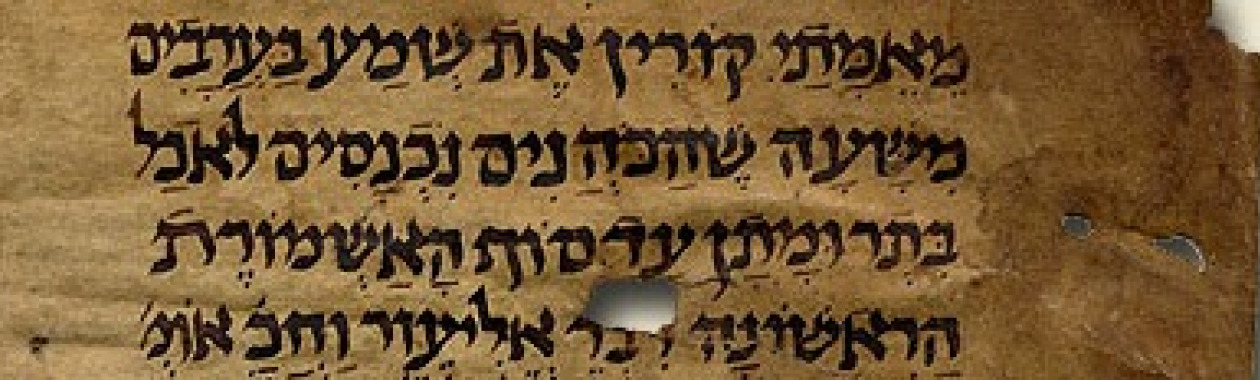 מאמתי קורין את שמע בערבים
משעה שהכהנים נכנסים לאכל
בתרומתן עד סוף האשמורת
הראשונה דבר אליעזר וחכ׳ אומ׳